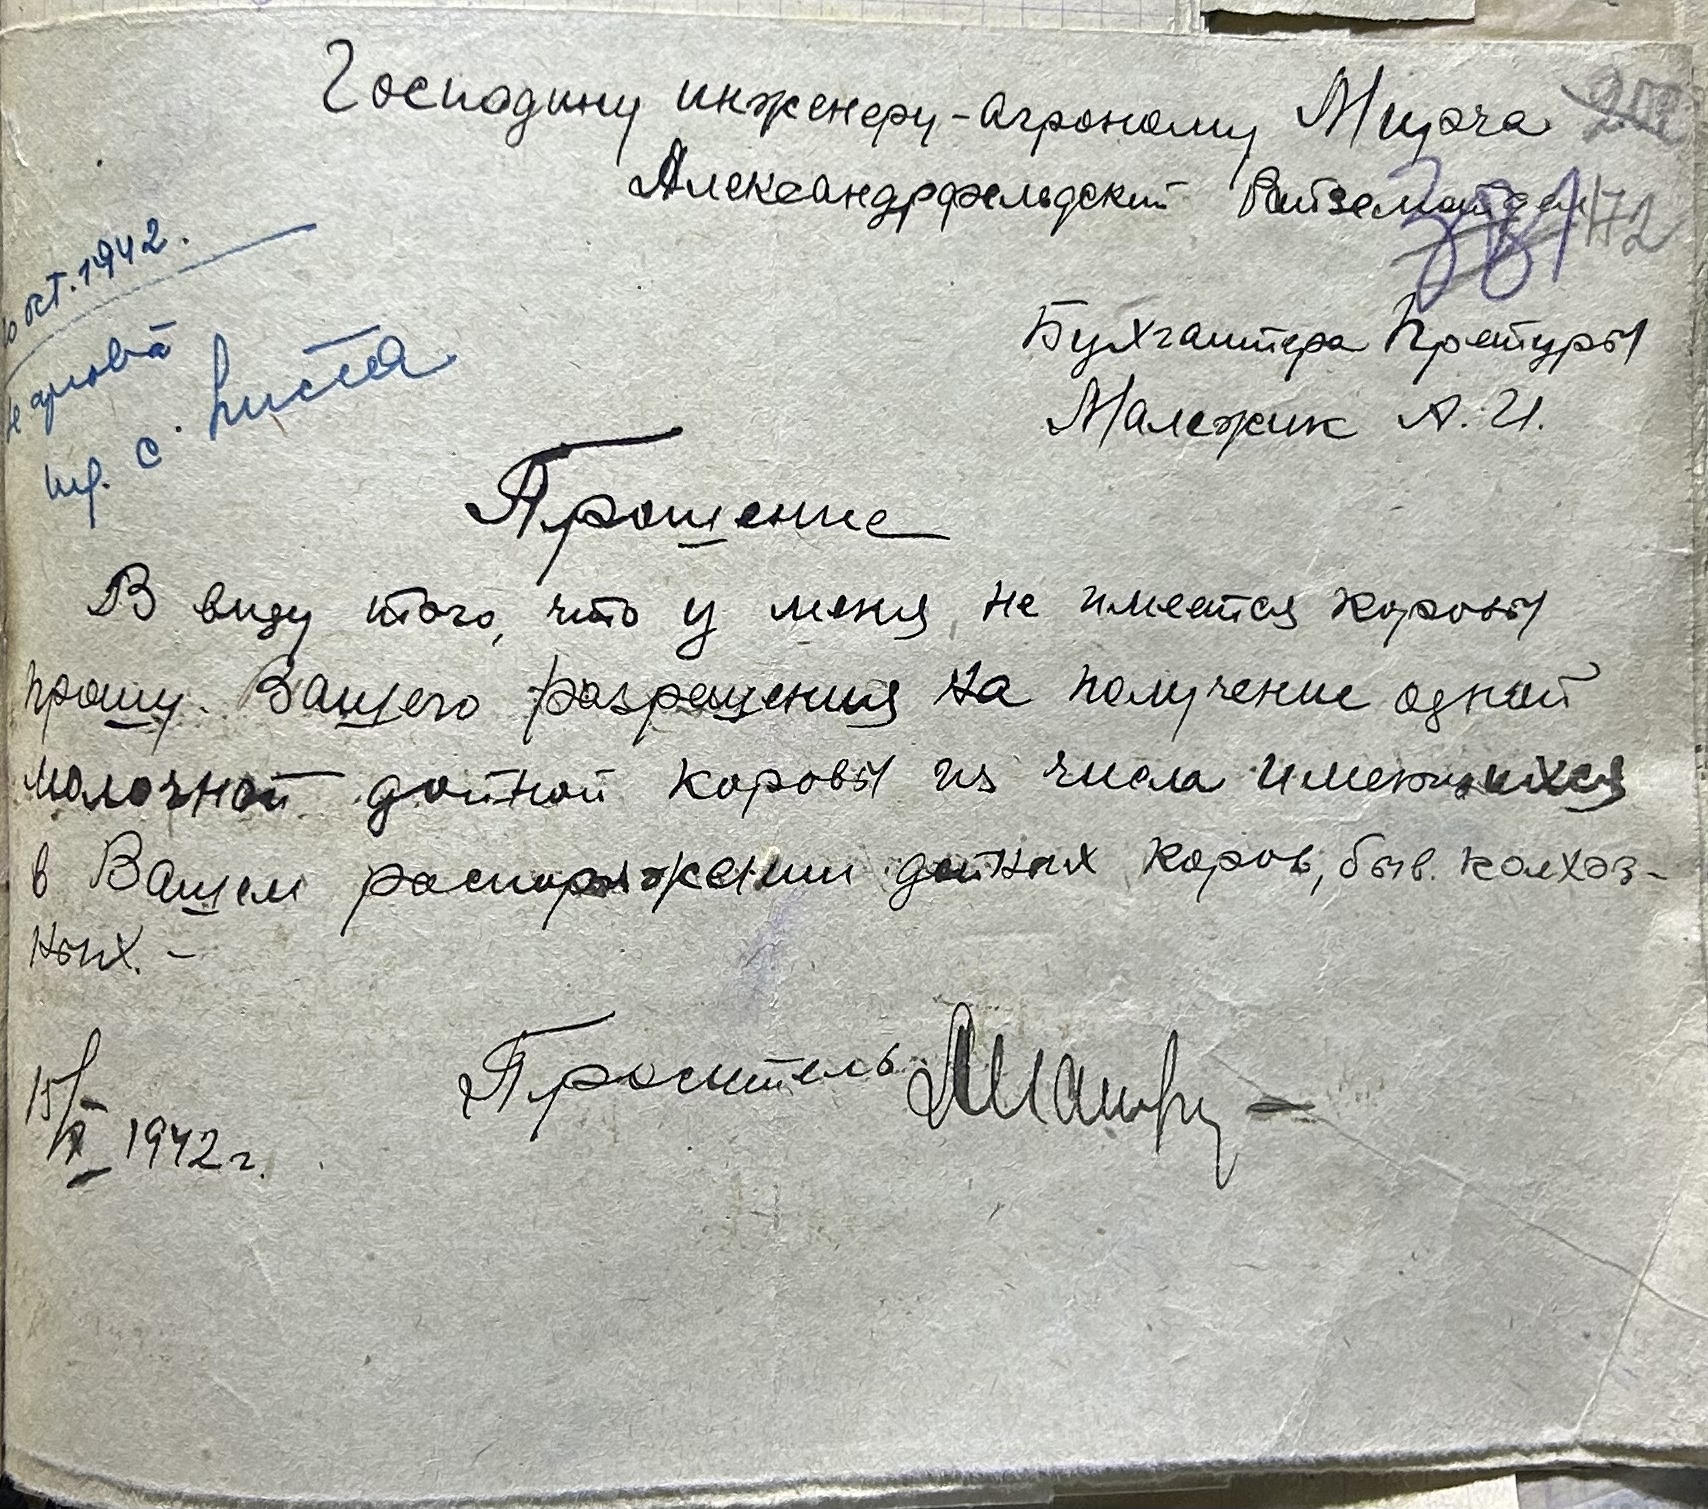 Господину инженеру-агроному Мирча
Александрфельдский
172
Бухгалтера Претуры
Малежик А. И.
окт. 1942.
листа
Прошение
В виду того, что у меня не имеется коровы
прошу Вашего разрешения на получение одной
молочной дойной коровы из числа имеющихся
в Вашем распоряжении дойных коров, быв. колхоз-
ных. -
Проситель
15/X 1942 г.